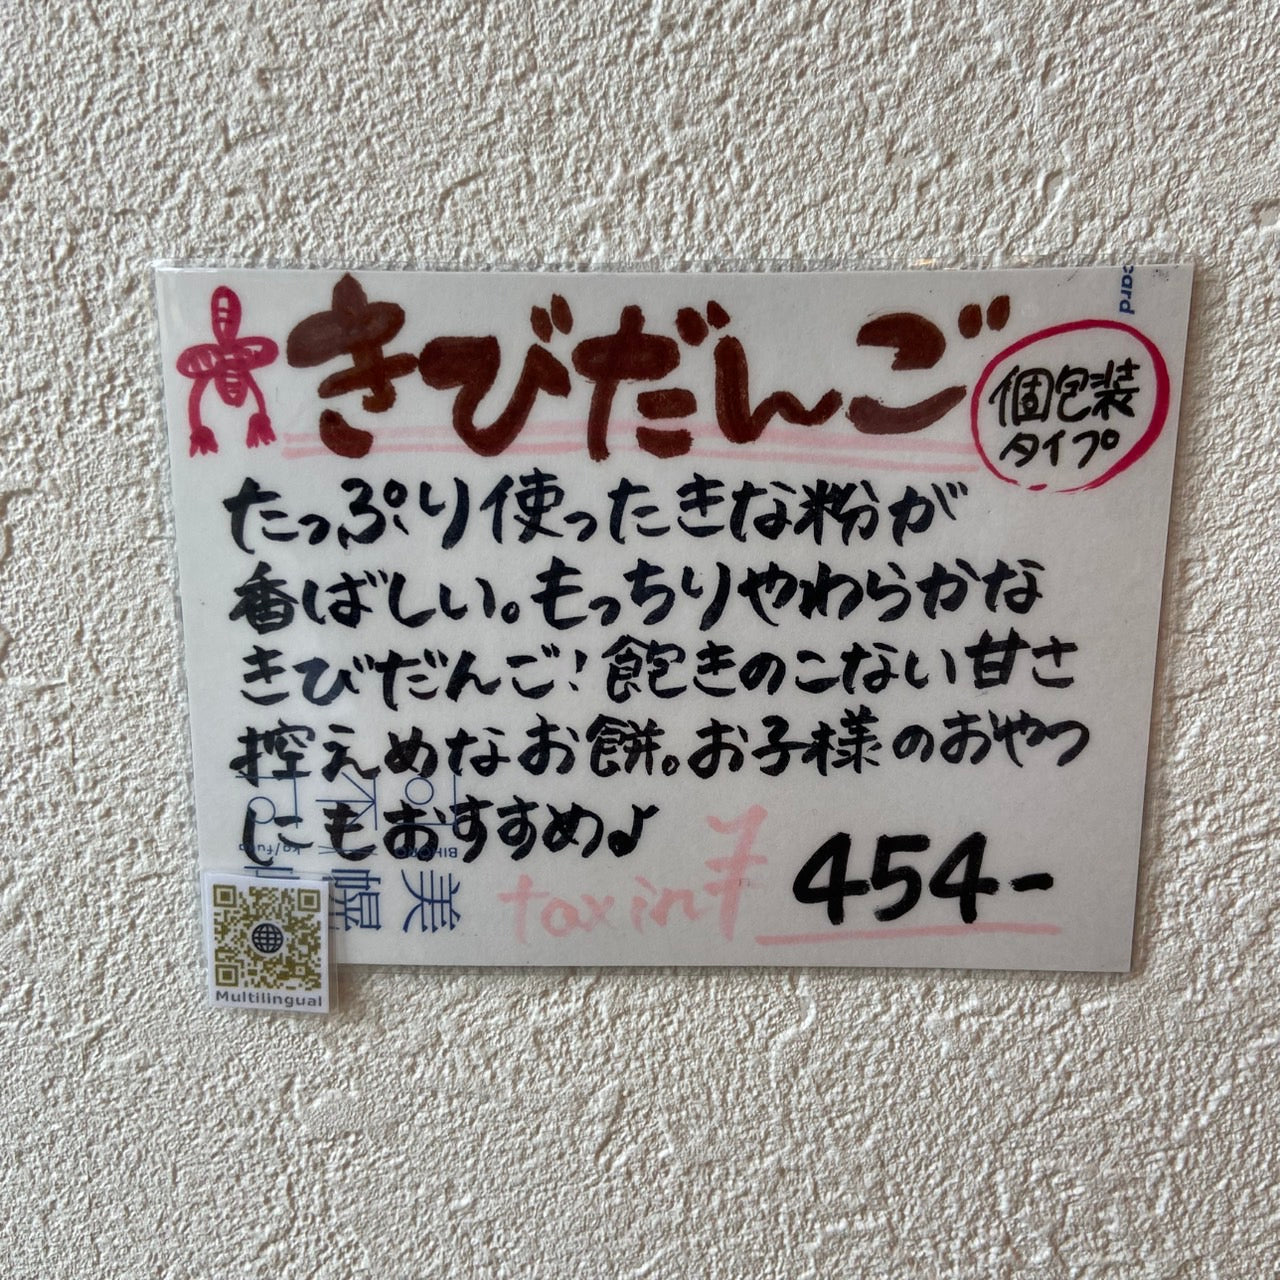 きびだんご
個包装
タイプ
たっぷり使ったきな粉が
香ばしい。もっちりやわらかな
きびだんご!飽きのこない甘さ
控えめなお餅。お子様のおやつ
にもおすすめ♪
tax in ¥454-
card
BIHORO
美幌
Multilingual